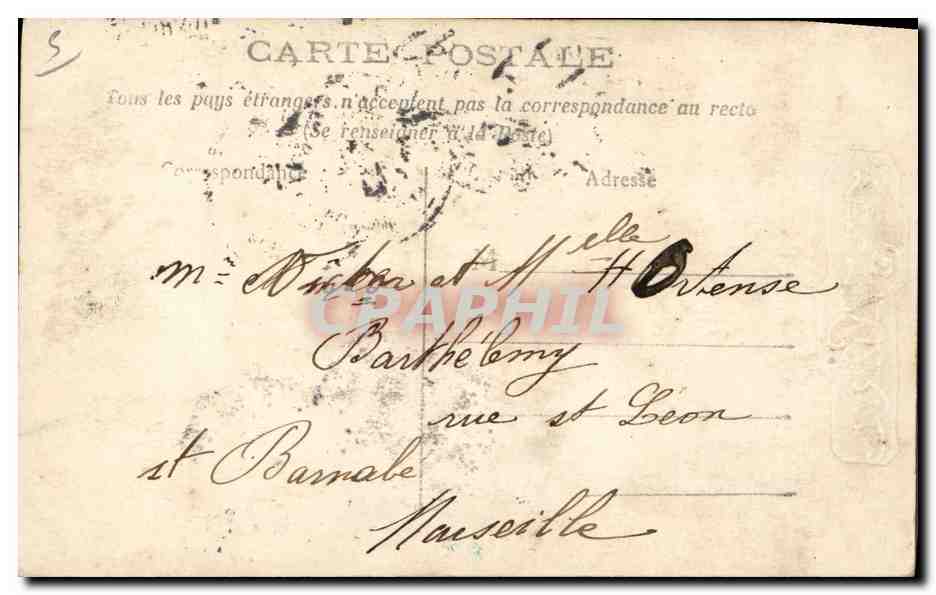 5
CARTE POSTALE
Tous les pays étrangers n'acceptent pas la correspondance au recto
(Se renseigner à la Poste)
Correspondance Adresse
A
m= et Melle Hortense
CPAPHIL
Barthélemy
rue st Léon
st Barnabe
Marseille